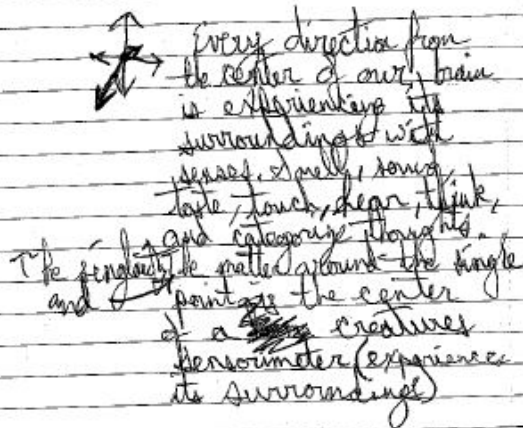 Every direction from
the center of our brain
is experiencing its
surroundings with
senses. Smell, sound,
taste, touch, hear, think,
and categorize thoughts.
The singularity and the matter around the single
point is the center
of a creatures
sensorimeter (experiences
its surroundings)